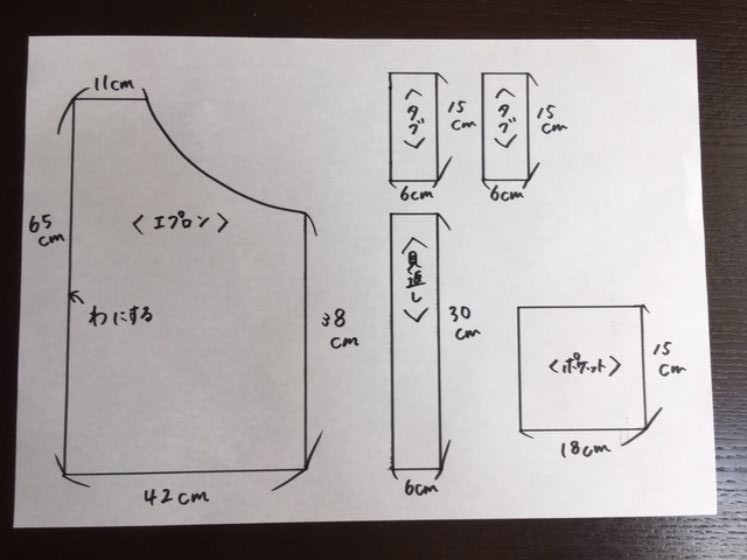 11cm
65
cm
〈エプロン〉
わにする
38
cm
42cm
〈タブ〉
15
cm
6cm
〈タブ〉
15
cm
6cm
〈見返し〉
30
cm
6cm
〈ポケット〉
15
cm
18cm